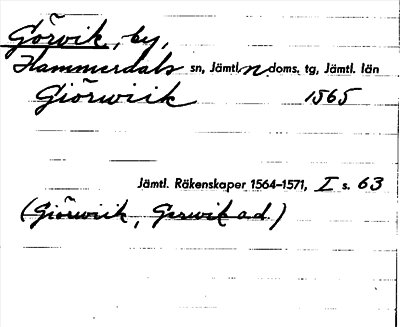 Görvik, by,
Hammerdals sn, Jämtl. n doms. tg, Jämtl. län
Giörwiik 1565
Jämtl. Räkenskaper 1564-1571, I s. 63
(Giörwiik, Gerwik ad.)